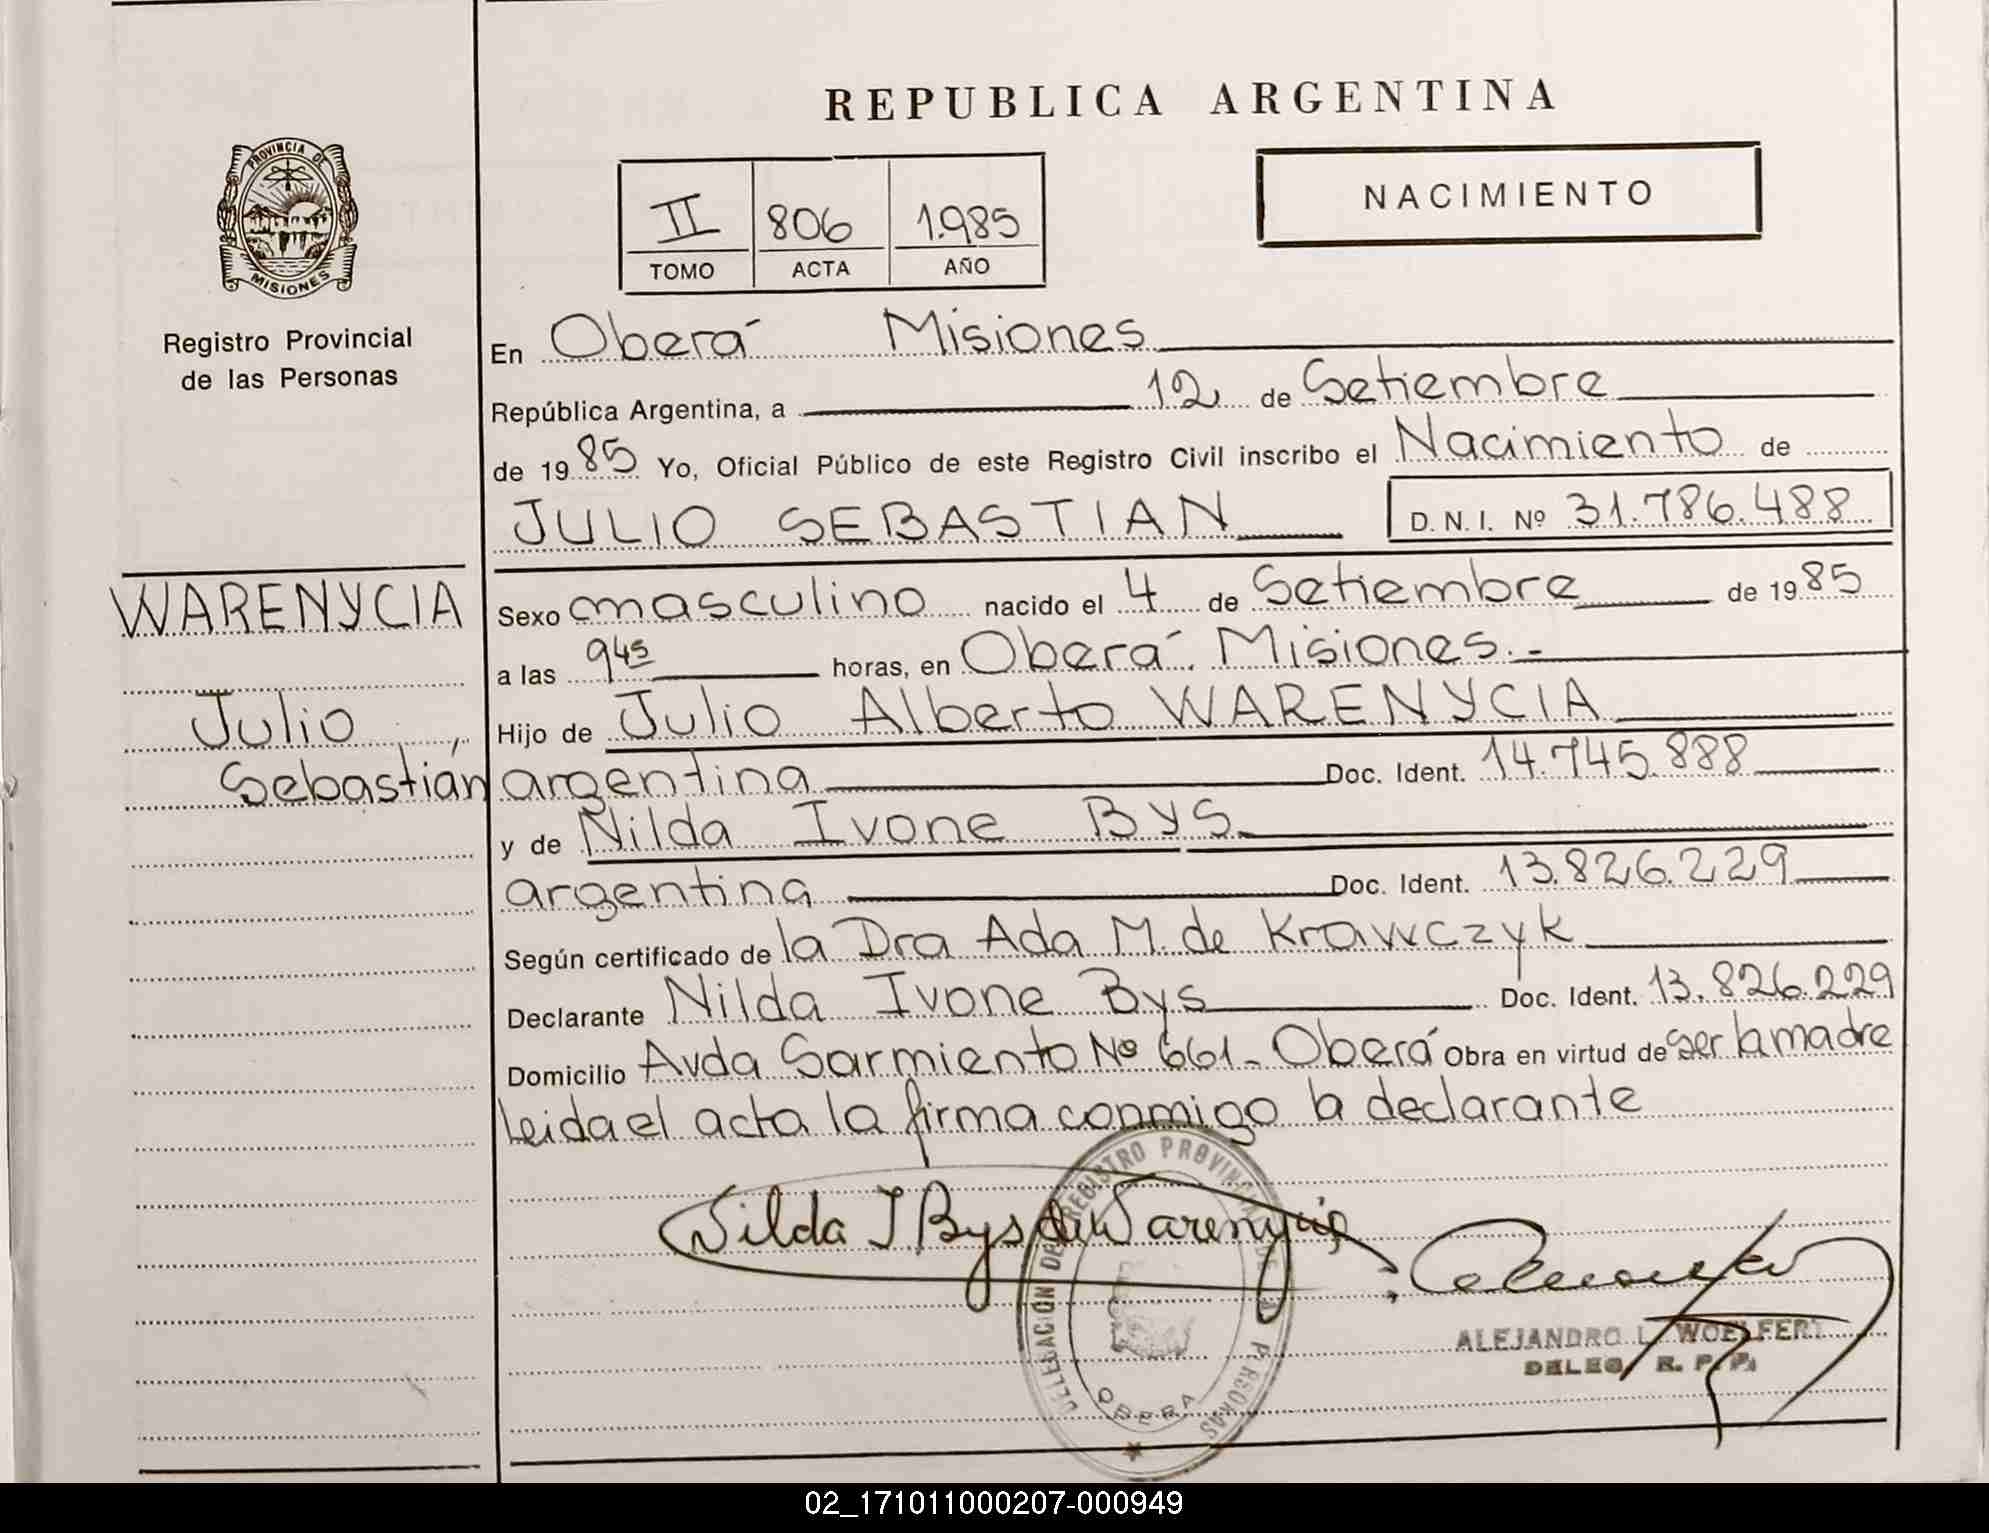 REPUBLICA ARGENTINA
PROVINCIA DE
MISIONES
Registro Provincial
de las Personas
II 806 1.985
TOMO ACTA AÑO
NACIMIENTO
WARENYCIA
Julio
Sebastián
En Oberá Misiones
República Argentina, a 12 de Setiembre
de 1985 Yo, Oficial Público de este Registro Civil inscribo el Nacimiento de
JULIO SEBASTIAN D. N. I. Nº 31.786.488
Sexo masculino nacido el 4 de Setiembre de 1985
a las 9 45 horas, en Oberá. Misiones.-
Hijo de Julio Alberto WARENYCIA
argentina Doc. Ident. 14.745.888
y de Nilda Ivone Bys
argentina Doc. Ident. 13.826.229
Según certificado de la Dra Ada M. de Krawczyk
Declarante Nilda Ivone Bys Doc. Ident. 13.826.229
Domicilio Avda Sarmiento Nº 661- Oberá Obra en virtud de ser la madre
Leida el acta la firma conmigo la declarante
Nilda I Bys de Warenycia
DELEGACIÓN DEL REGISTRO PROVINCIAL DE LAS PERSONAS
OBERA
ALEJANDRO L. WOELFERT
DELEG. R. P. P.
02_171011000207-000949